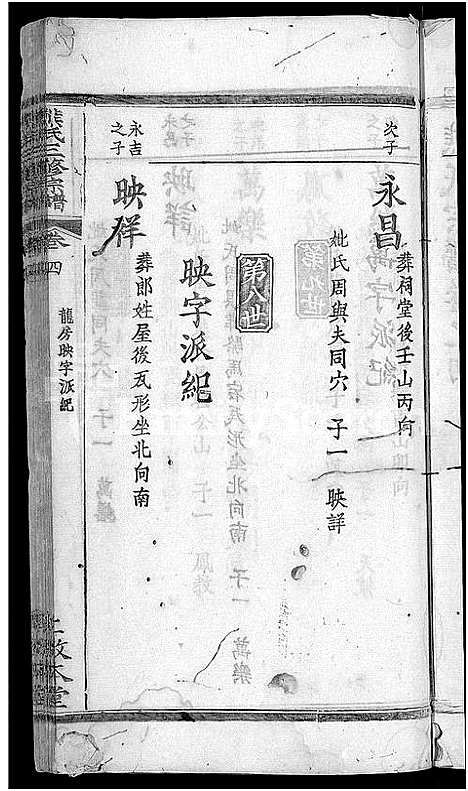 次子
永昌
葬祠堂後壬山丙向
妣氏周與夫同穴 子一 映詳
第八世
映字派紀
永吉之子
映祥
葬郎姓屋後瓦形坐北向南
熊氏三修宗譜
卷四
龍房映字派紀
敦本堂